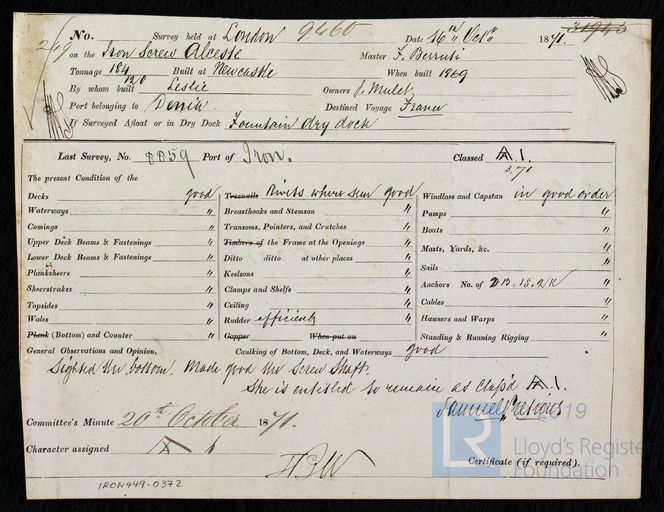 No. Survey held at London 9460 Date 16th Octr 1871. 31940
269 on the Iron Screw Alceste Master F. Berruti
Tonnage 184 Built at Newcastle When built 1869
120
By whom built Leslie Owners J. Mulet
Port belonging to Denia Destined Voyage France
If Surveyed Afloat or in Dry Dock Fountain dry dock
Last Survey, No. 8859 Port of Iron. Classed A 1.
3.71
The present Condition of the
Decks good Treenails Rivets where seen good Windlass and Capstan in good order
Waterways " Breasthooks and Stemson " Pumps "
Comings " Transoms, Pointers, and Crutches " Boats "
Upper Deck Beams & Fastenings " Timbers of the Frame at the Openings " Masts, Yards, &c. "
Lower Deck Beams & Fastenings " Ditto ditto at other places " Sails "
Planksheers " Keelsons " Anchors No. of 2B. 1S. 2K "
Sheerstrakes " Clamps and Shelfs " Cables "
Topsides " Ceiling " Hawsers and Warps "
Wales " Rudder efficient Standing & Running Rigging "
Plank (Bottom) and Counter " Copper When put on
General Observations and Opinion, Caulking of Bottom, Deck, and Waterways good
Sighted the bottom. Made good the Screw Shaft.
She is entitled to remain as Class'd A 1.
Samuel Pretious
Committee's Minute 20th October 1871.
Character assigned A 1
Certificate (if required).
IRON449-0372
LR
2019
Lloyd's Register
Foundation